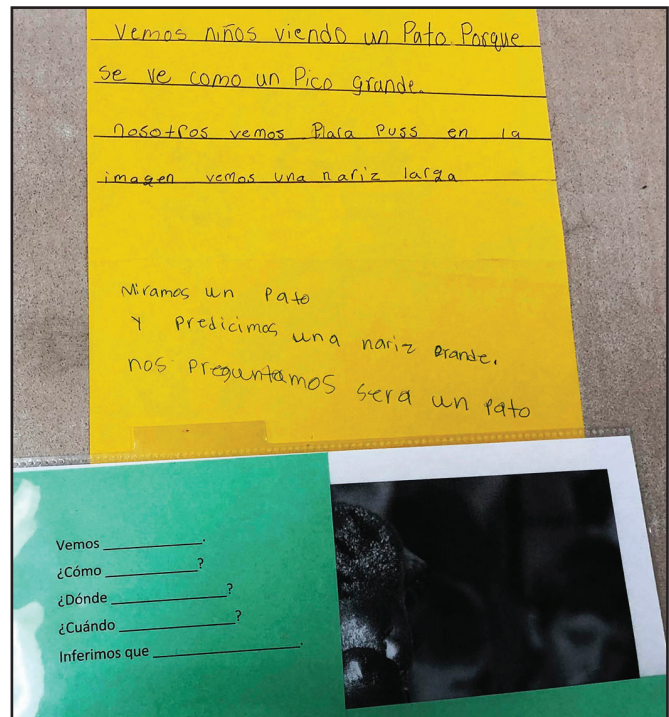 Vemos niños viendo un Pato Porque
se ve como un Pico grande.
nosotros vemos Plata Puss en la
imagen vemos una nariz larga
Miramos un Pato
Y Predicimos una nariz grande.
nos Preguntamos sera un Pato
Vemos ____________.
¿Cómo ____________?
¿Dónde ____________?
¿Cuándo ____________?
Inferimos que ____________.